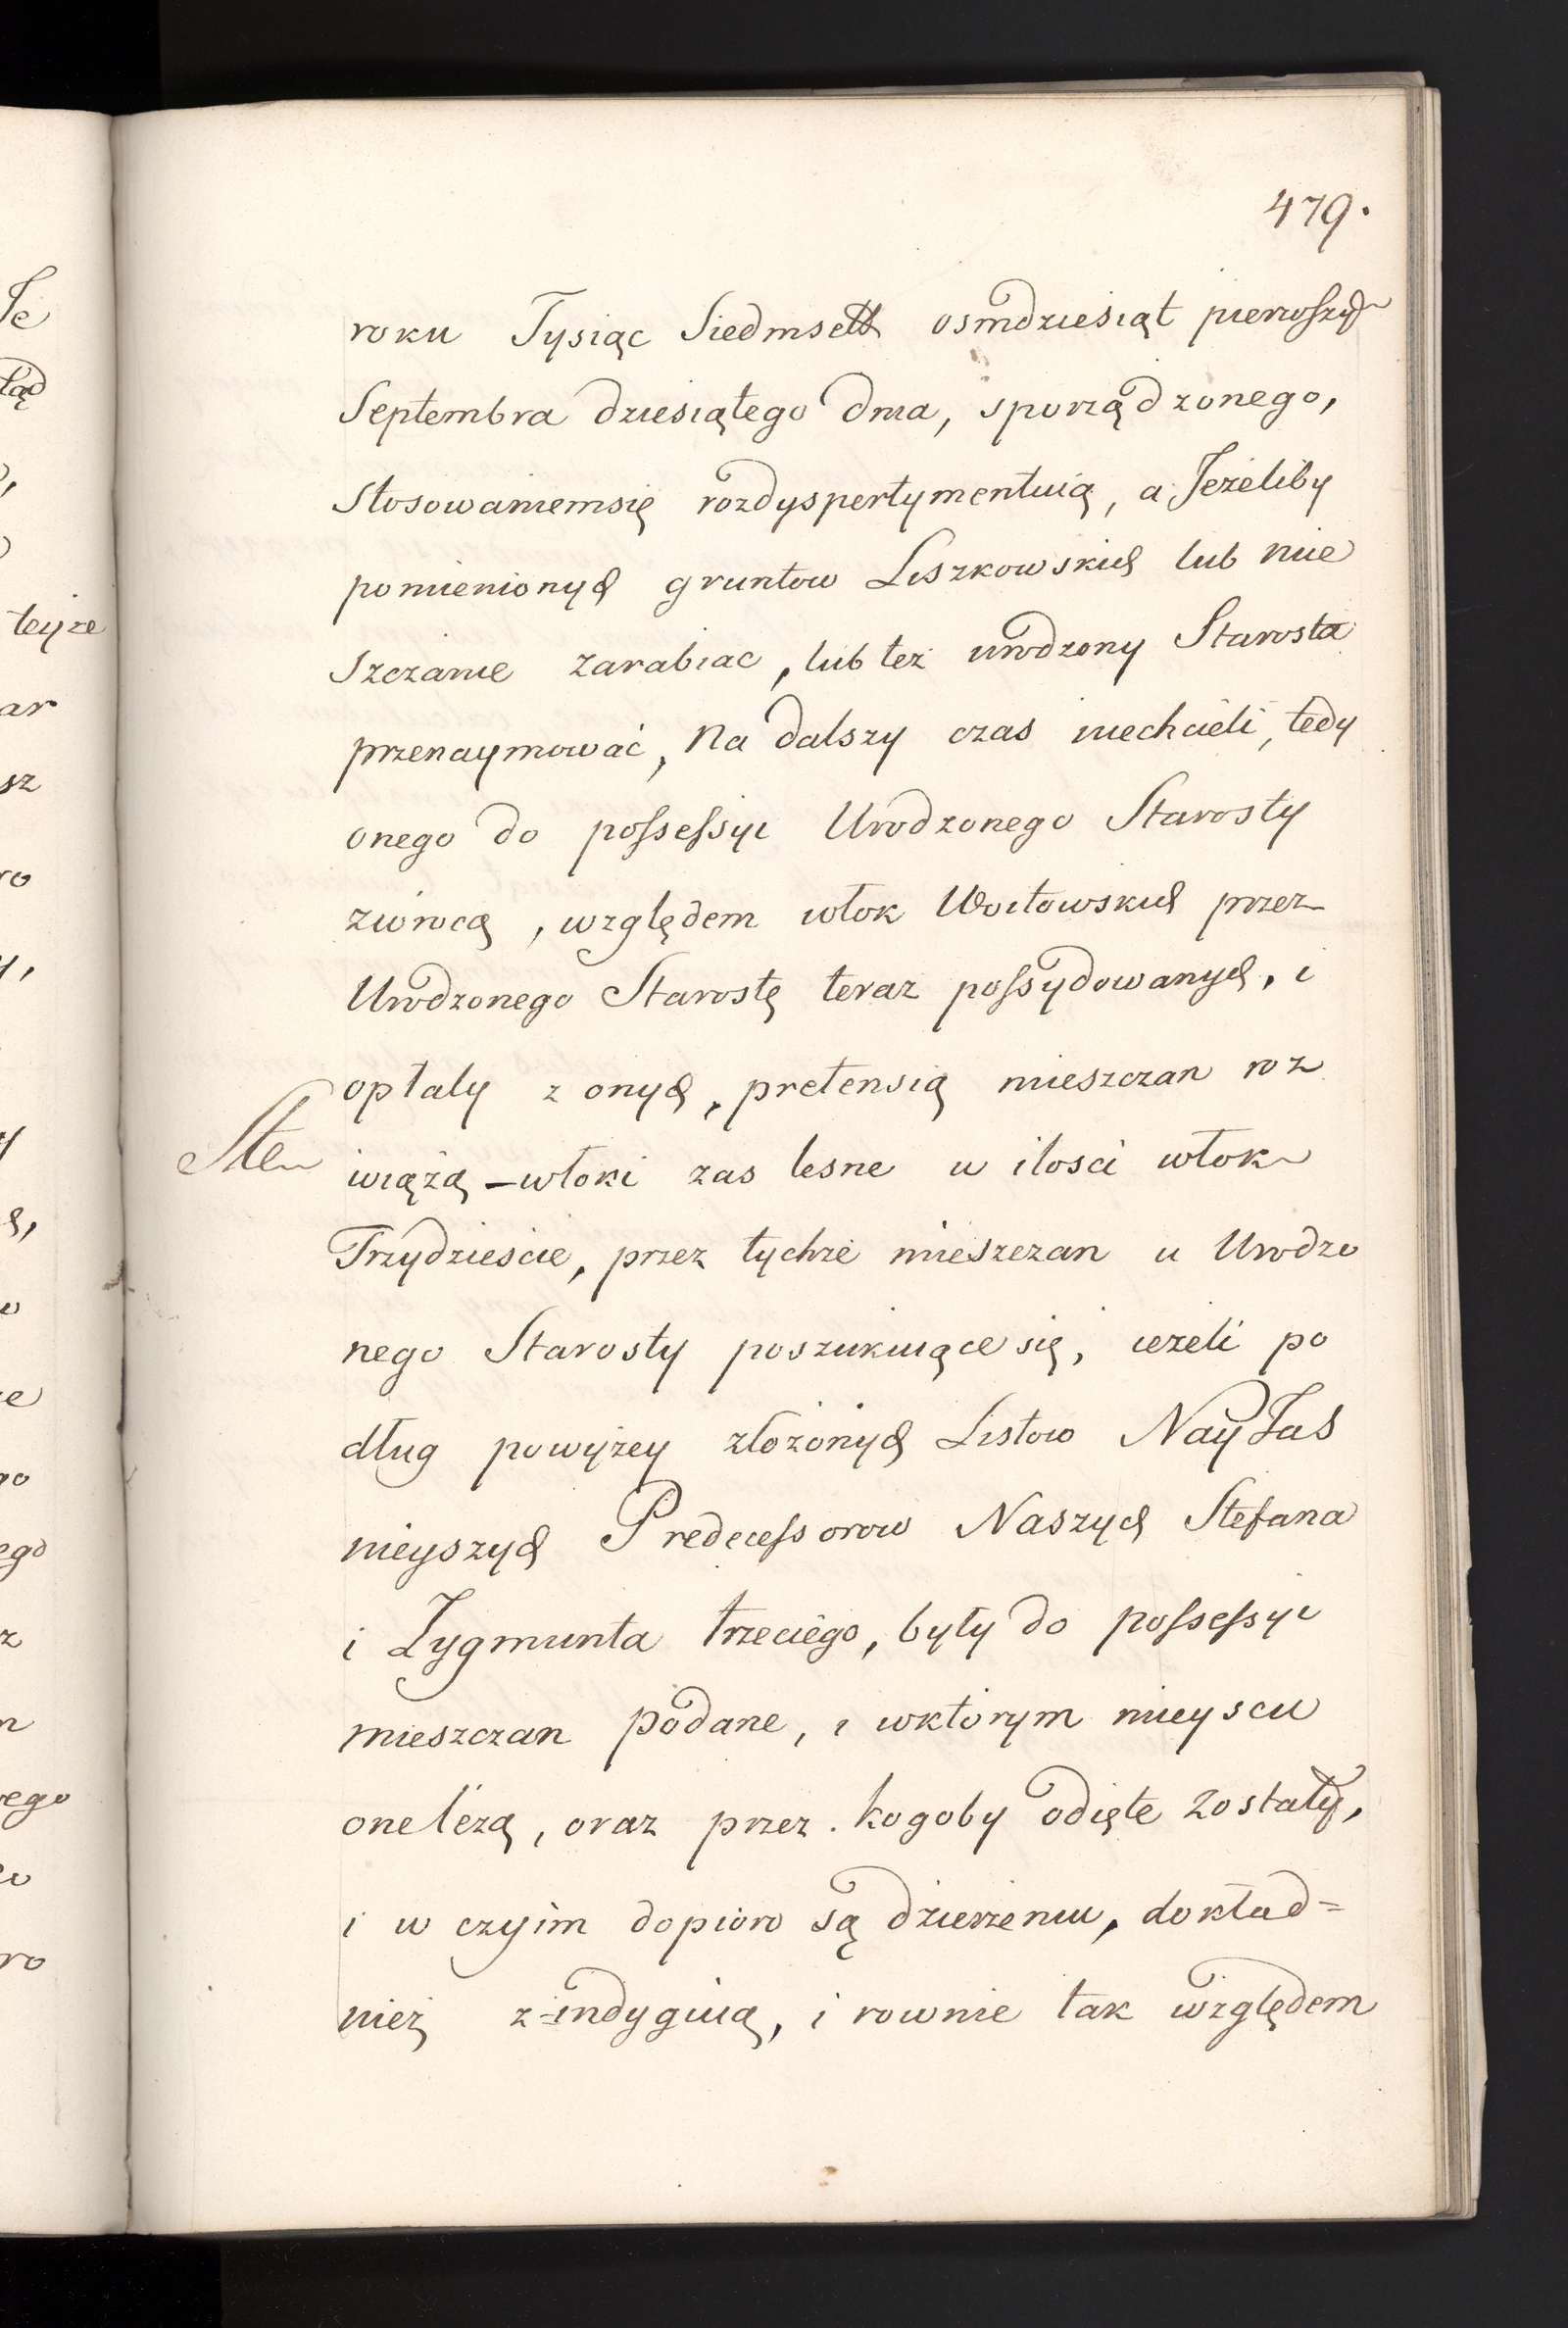 479.
roku Tysiąc Siedmset osmdziesiąt pierwszy
Septembra dziesiątego dnia, sporządzonego,
stosowaniemsię rozdyspertymentuią, a Jeżeliby
pomienionych gruntow Liszkowskich lub mie
szczanie zarabiac, lub tez urodzony Starosta
przenaymować, na dalszy czas niechcieli, tedy
onego do possessyi Urodzonego Starosty
zwrocą, względem włok Woitowskich przez
Urodzonego Starostę teraz possydowanych, i
opłaty z onych, pretensią mieszczan roz
wiążą – włoki zas lesne w ilosci włok
Trzydziescie, przez tychże mieszczan u Urodzo
nego Starosty poszukuiące się, ieżeli po
dług powyżey złożonych Listow NayJas
nieyszych Predecessorow Naszych Stefana
i Zygmunta trzeciego, były do possessyi
mieszczan podane, i wktorym mieyscu
oneleżą, oraz przez kogoby odięte zostały,
i w czyim dopioro są dzierżeniu, dokład=
nież z=indyguią, i rownie tak względem
Je
ład
teyże
ar
sz
ro
y,
y
ch,
e
go
ego
z
n
ego
ro